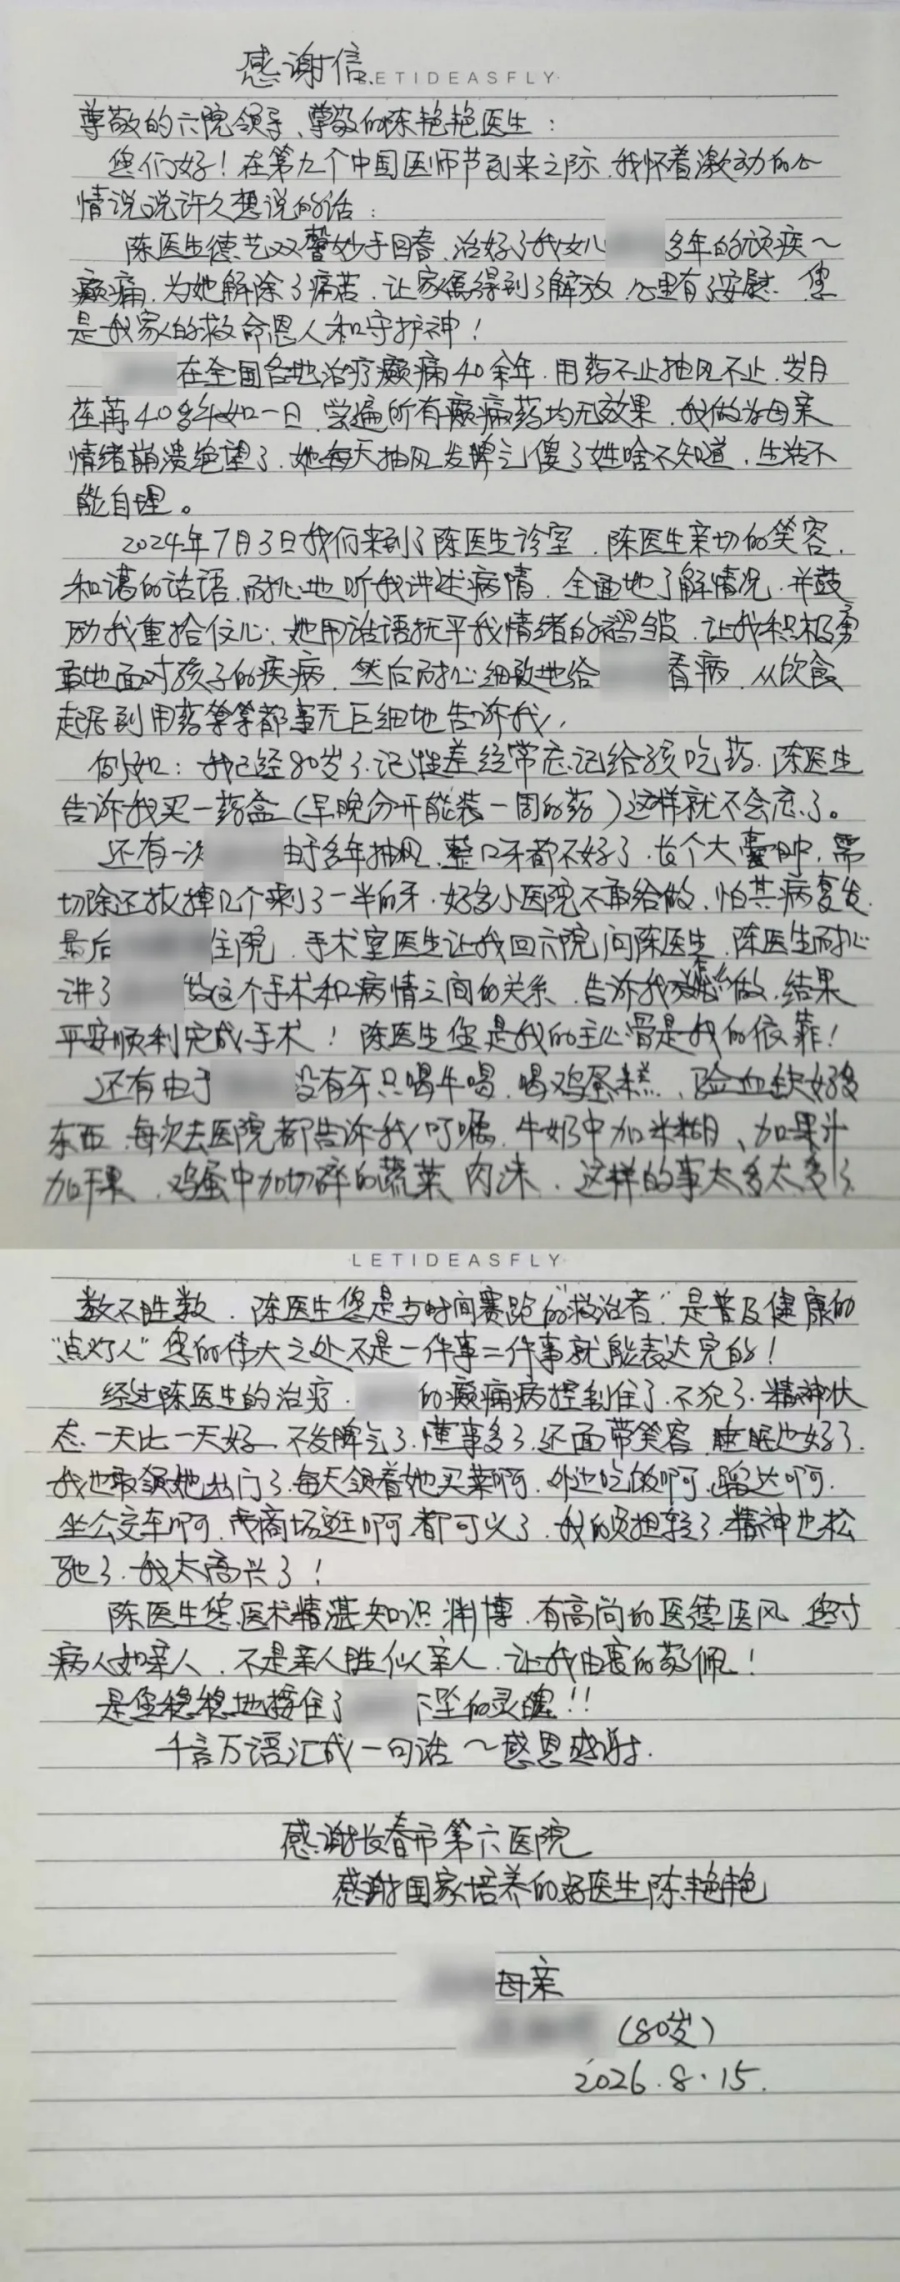 感谢信
LETIDEASFLY
尊敬的六院领导、尊敬的陈艳艳医生：
您们好！在第九个中国医师节到来之际，我怀着激动的心
情说说许久想说的话：
陈医生德艺双馨妙手回春，治好了我女儿多年的顽疾～
癫痫，为她解除了痛苦，让家属得到了解放，心里有了安慰。您
是我家人的救命恩人和守护神！
在全国各地治疗癫痫40余年，用药不止抽风不止，岁月
荏苒40多年如一日，尝遍所有癫痫药均无效果，我做为母亲
情绪崩溃绝望了，她每天抽风发脾气傻了姓啥不知道，生活不
能自理。
2024年7月3日我们来到了陈医生诊室，陈医生亲切的笑容，
和谒的话语，耐心地听我讲述病情，全面地了解情况，并鼓
励我重拾信心，她用话语抚平我情绪的褶皱，让我积极勇
敢地面对孩子的疾病，然后耐心细致地给看病，从饮食
起居到用药等等都事无巨细地告诉我，
例如：我已经80岁了，记性差经常忘记给孩吃药，陈医生
告诉我买一药盒（早晚分开能装一周的药）这样就不会忘了。
还有一次由于多年抽风，整口牙都不好了，长个大囊肿，需
切除还拔掉几个剩了一半的牙，好多小医院不敢给做，怕其病复发，
最后住院，手术室医生让我回六院问陈医生，陈医生耐心
讲了做这个手术和病情之间的关系，告诉我做，结果
平安顺利完成手术！陈医生您是我的主心骨是我的依靠！
还有由于没有牙只喝牛喝，喝鸡蛋糕，验血缺好多
东西，每次去医院都告诉我叮嘱，牛奶中加米糊、加果汁
加干果，鸡蛋中加切碎的蔬菜肉沫，这样的事太多太多了
LETIDEASFLY
数不胜数，陈医生您是与时间赛跑的“救治者”是普及健康的
“点灯人”您的伟大之处不是一件事二件事就能表达完的！
经过陈医生的治疗，的癫痫病控制住了，不犯了，精神状
态一天比一天好，不发脾气了，懂事多了，还面带笑容，睡眠也好了，
我也敢领她出门了，每天领着她买菜啊，外边吃饭啊，蹓达啊，
坐公交车啊，商场逛啊都可以了，我的负担轻了，精神也松
驰了，我太高兴了！
陈医生您医术精湛知识渊博，有高尚的医德医风，您对
病人如亲人，不是亲人胜似亲人，让我由衷的敬佩！
是您稳稳地接住了下坠的灵魂！！
千言万语汇成一句话～感恩感谢。
感谢长春市第六医院
感谢国家培养的好医生陈艳艳
母亲
（80岁）
2026.8.15.